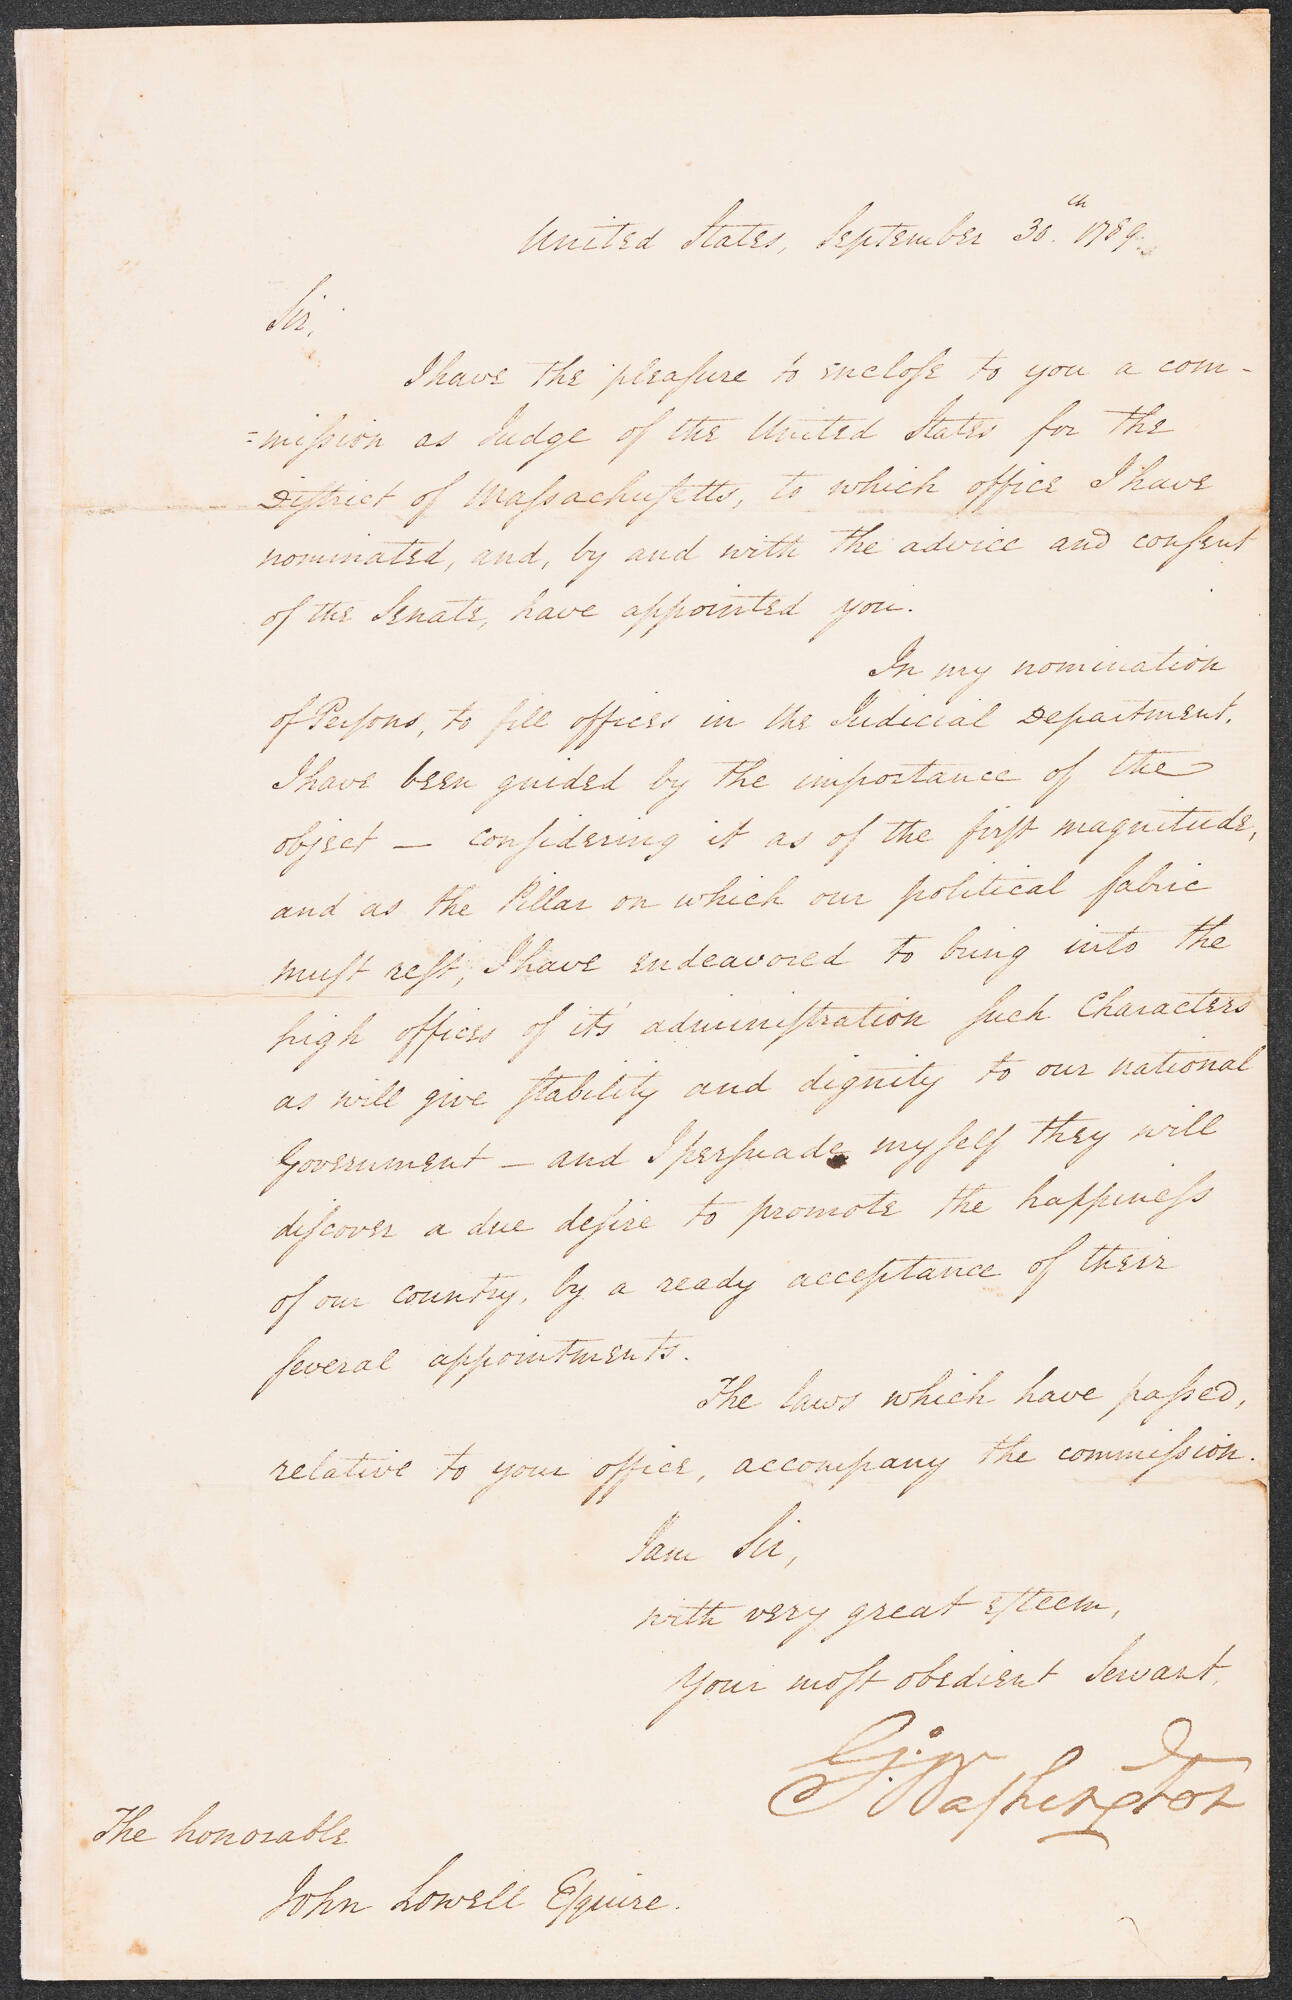 United States, September 30.th 1789.
Sir,
I have the pleasure to enclose to you a com-
=mission as Judge of the United States for the
District of Massachusetts, to which office I have
nominated, and, by and with the advice and consent
of the Senate, have appointed you.
In my nomination
of Persons, to fill offices in the Judicial Department,
I have been guided by the importance of the
object — considering it as of the first magnitude,
and as the Pillar on which our political fabric
must rest, I have endeavored to bring into the
high offices of it's administration such Characters
as will give stability and dignity to our national
Government — and I persuade myself they will
discover a due desire to promote the happiness
of our country, by a ready acceptance of their
several appointments.
The laws which have passed,
relative to your office, accompany the commission.
I am Sir,
with very great esteem,
Your most obedient Servant,
G:Washington
The honorable
John Lowell Esquire.